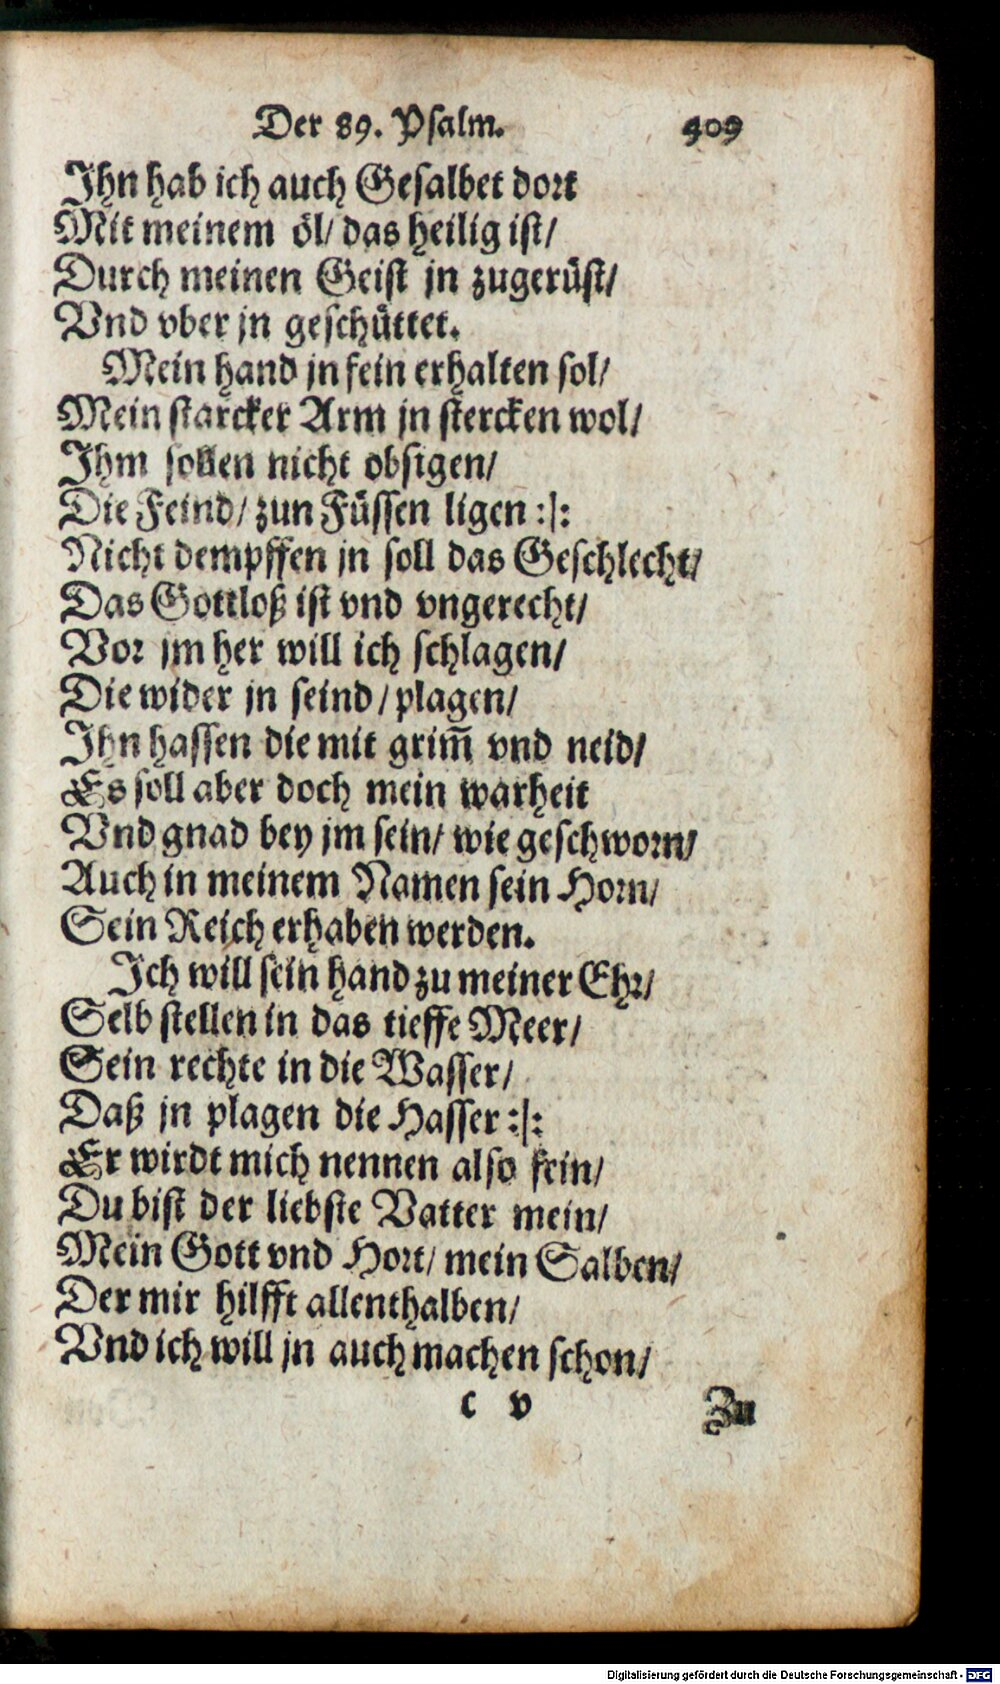 Der 89. Psalm. 409
Ihn hab ich auch Gesalbet dort
Mit meinem öl/ das heilig ist/
Durch meinen Geist jn zugerüst/
Vnd vber jn geschüttet.
Mein hand jn fein erhalten sol/
Mein starcker Arm jn stercken wol/
Ihm sollen nicht obsigen/
Die Feind/ zun Füssen ligen :|:
Nicht dempffen jn soll das Geschlecht/
Das Gottloß ist vnd vngerecht/
Vor jm her will ich schlagen/
Die wider jn seind/ plagen/
Ihn hassen die mit grim̃ vnd neid/
Es soll aber doch mein warheit
Vnd gnad bey jm sein/ wie geschworn/
Auch in meinem Namen sein Horn/
Sein Reich erhaben werden.
Ich will sein hand zu meiner Ehr/
Selb stellen in das tieffe Meer/
Sein rechte in die Wasser/
Daß jn plagen die Hasser :|:
Er wirdt mich nennen also fein/
Du bist der liebste Vatter mein/
Mein Gott vnd Hort/ mein Salben/
Der mir hilfft allenthalben/
Vnd ich will jn auch machen schon/
c v Zu
Digitalisierung gefördert durch die Deutsche Forschungsgemeinschaft - DFG